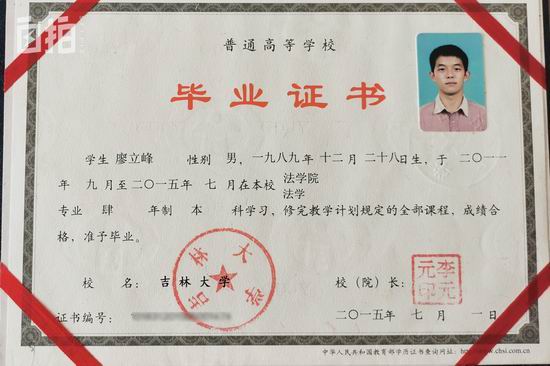 自拍
普通高等学校
毕业证书
学生 廖立峰 性别 男，一九八九年 十二月 二十八日生，于 二〇一一
年 九月至二〇一五年 七月在本校 法学院
法学
专业 肆 年制 本 科学习，修完教学计划规定的全部课程，成绩合
格，准予毕业。
吉林大学
校 名：吉林大学
校（院）长：
李元元印
证书编号：
二〇一五年 七月 一日
中华人民共和国教育部学历证书查询网址：http://www.chsi.com.cn